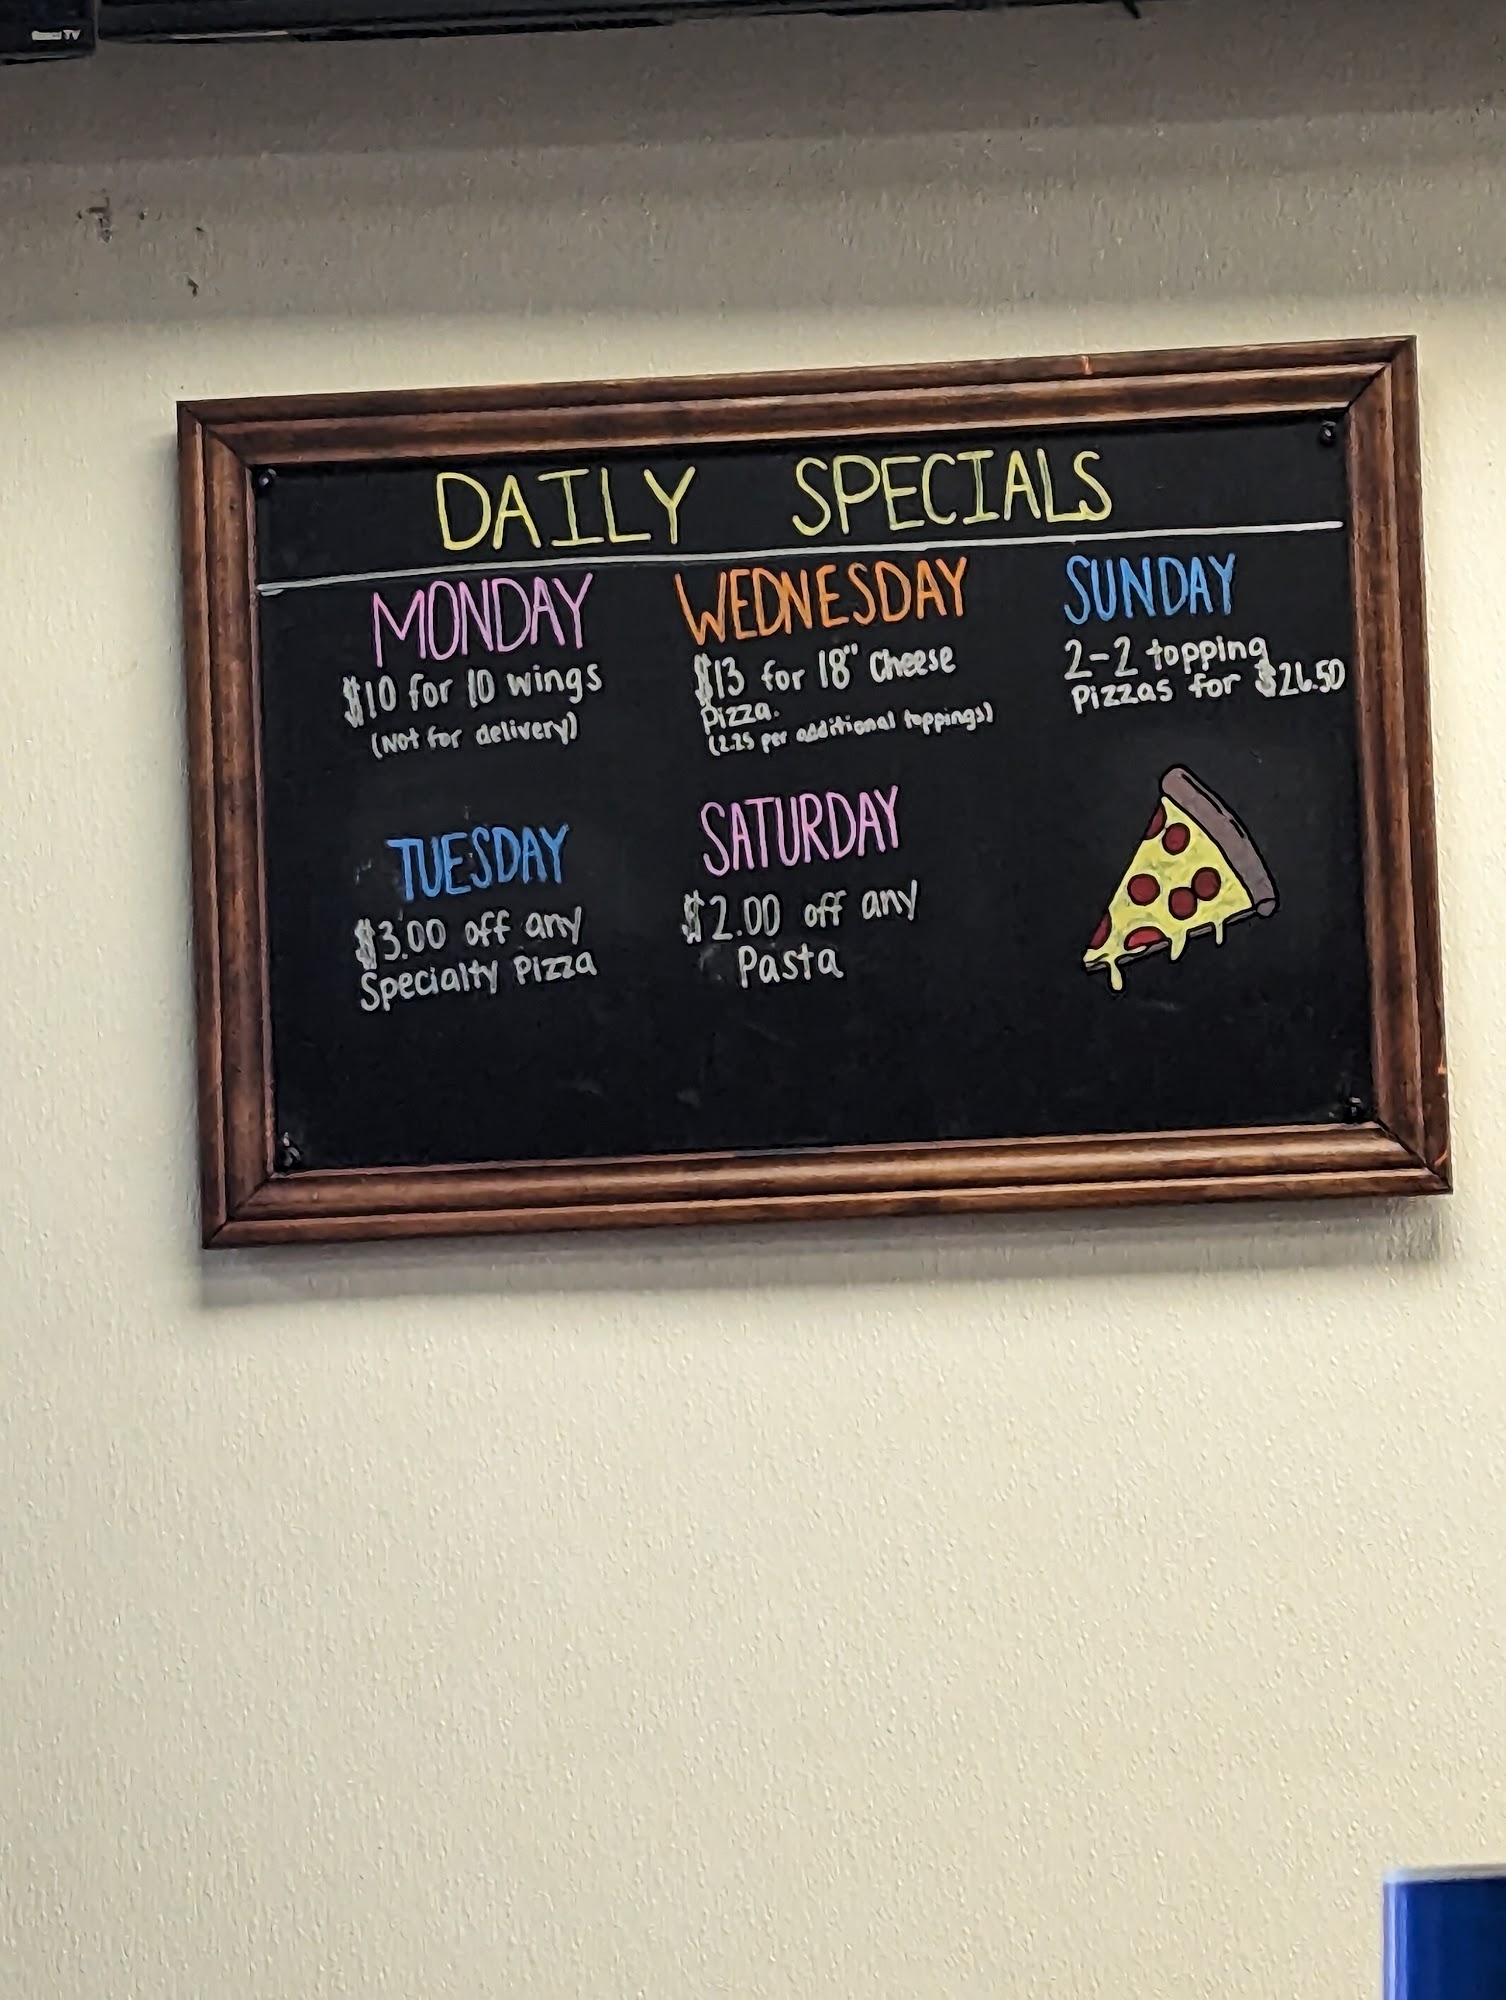 Roku TV
DAILY SPECIALS
MONDAY
$10 for 10 wings
(Not for delivery)
TUESDAY
$3.00 off any
Specialty Pizza
WEDNESDAY
$13 for 18" Cheese
Pizza.
(2.25 per additional toppings)
SATURDAY
$2.00 off any
Pasta
SUNDAY
2-2 topping
Pizzas for $26.50